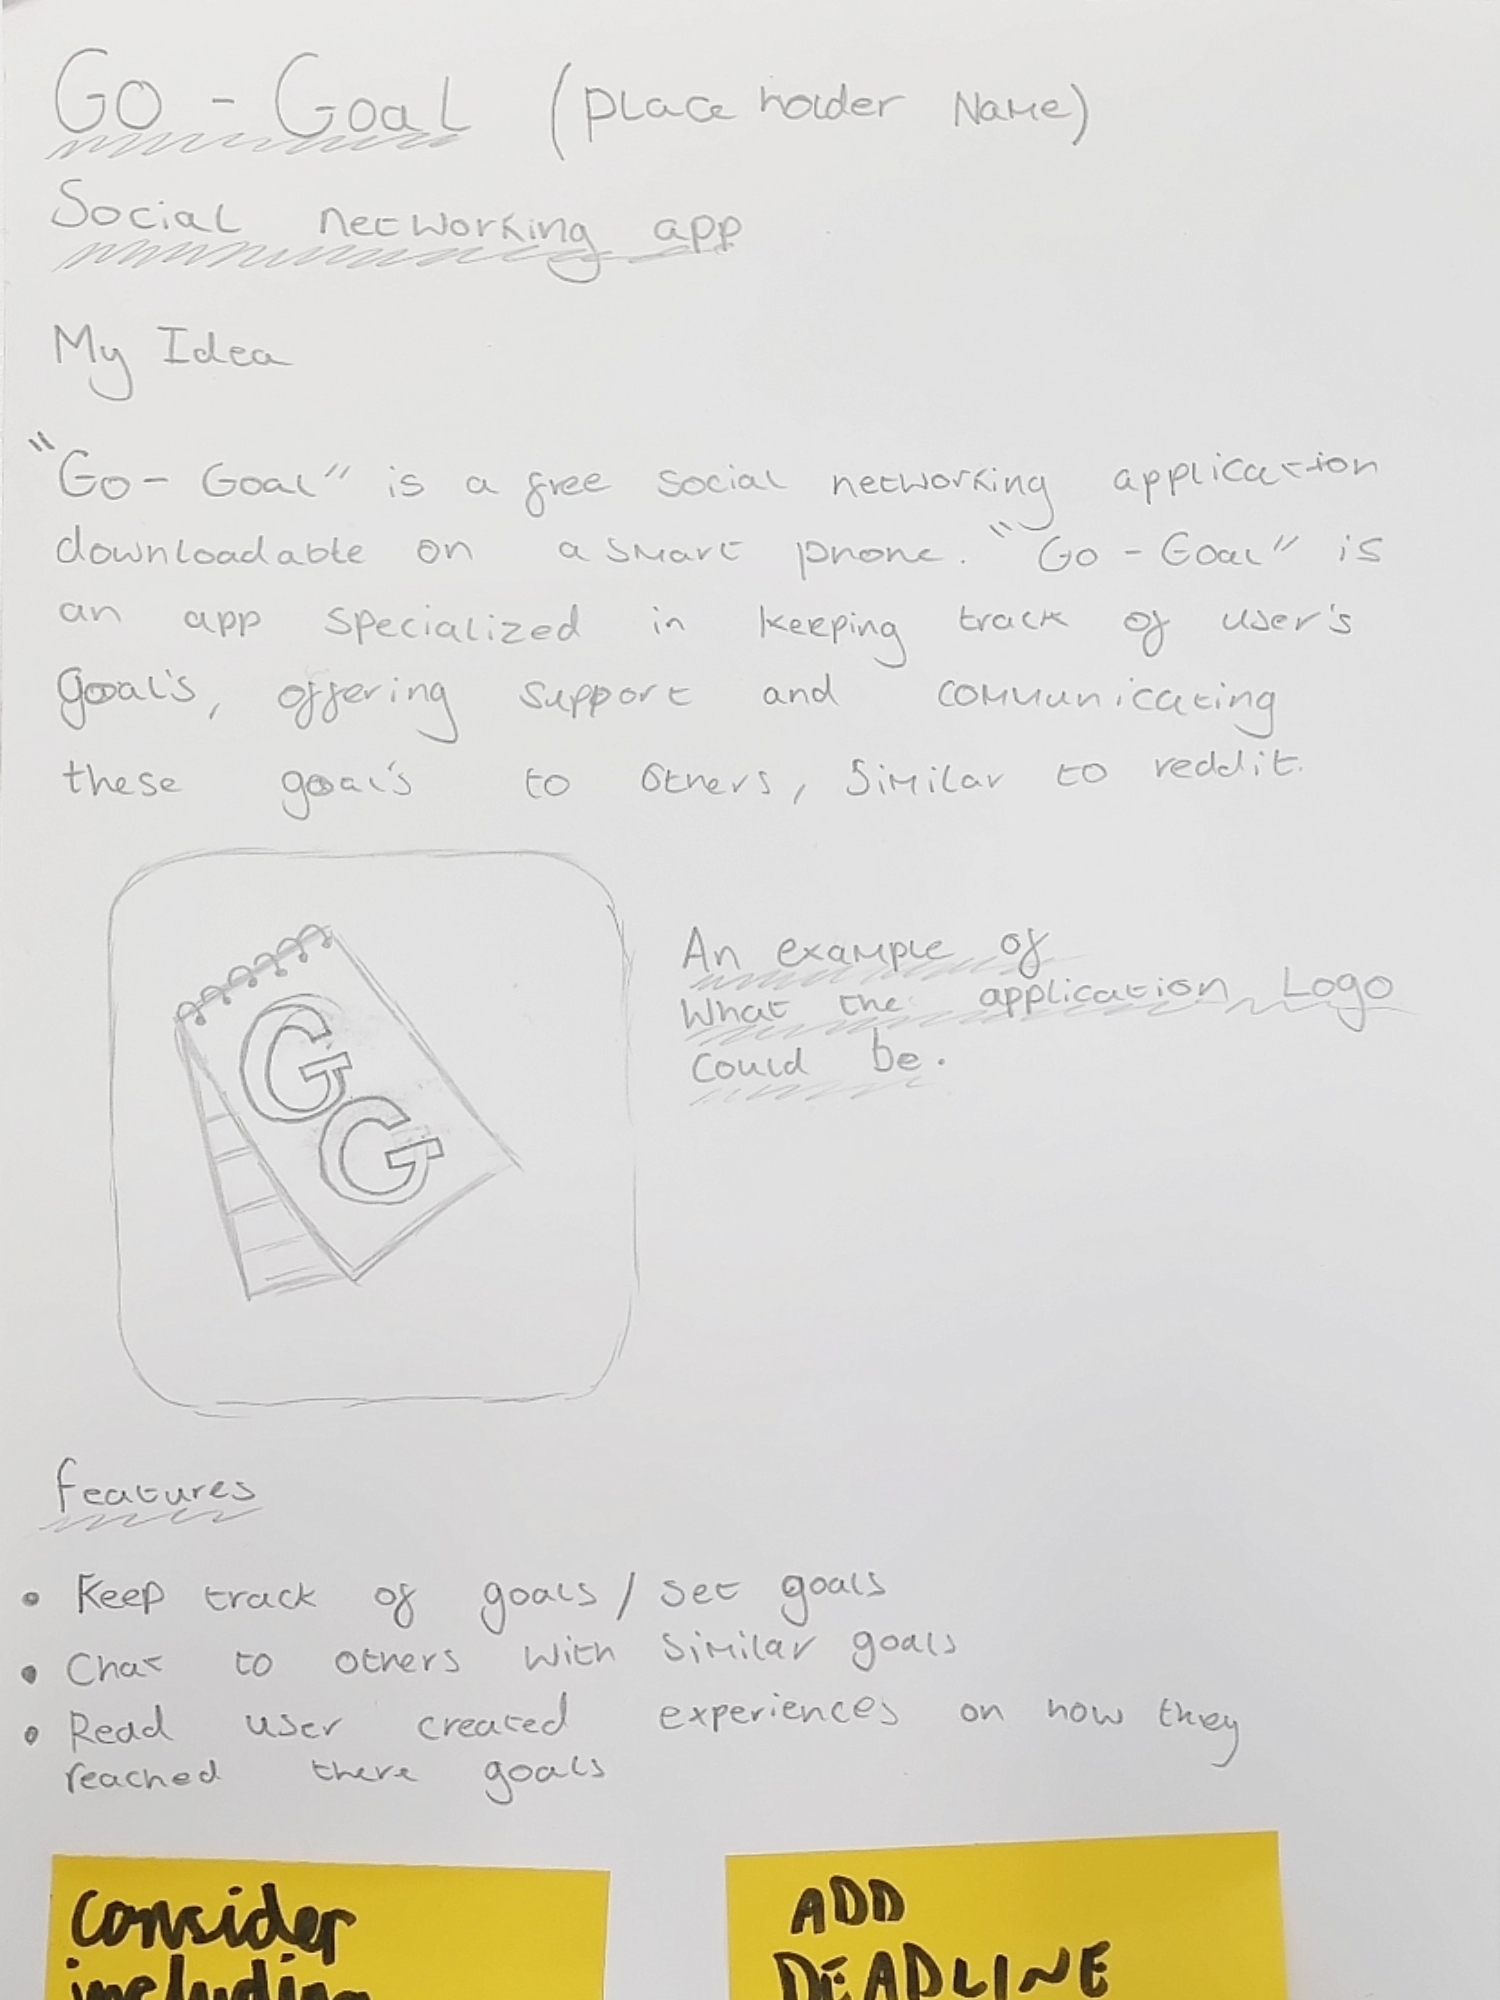 Go - Goal (Place holder Name)
Social networking app
My Idea
"Go - Goal" is a free social networking application
downloadable on a smart phone. "Go - Goal" is
an app specialized in keeping track of user's
goal's, offering support and communicating
these goal's to others, similar to reddit.
G
G
An example of
What the application Logo
could be.
features
• Keep track of goals / set goals
• Chat to others with similar goals
• Read user created experiences on how they
reached there goals
Consider
including
ADD
DEADLINE